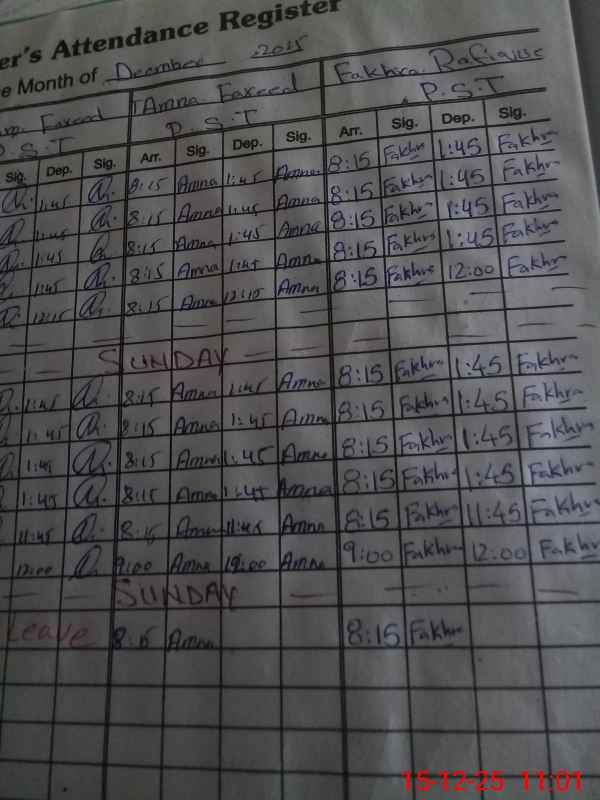 er's Attendance Register
e Month of December .2015
Fareed Amna Fareed Fakhra Rafique
P.S.T P.S.T P.S.T
Sig. Dep. Sig. Arr. Sig. Dep. Sig. Arr. Sig. Dep. Sig.
1:45 8:15 Amna 1:45 Amna 8:15 Fakhr 1:45 Fakhr
1:45 8:15 Amna 1:45 Amna 8:15 Fakhr 1:45 Fakhr
1:45 8:15 Amna 1:45 Amna 8:15 Fakhr 1:45 Fakhr
1:45 8:15 Amna 1:45 Amna 8:15 Fakhr 1:45 Fakhr
12:15 8:15 Amna 12:15 Amna 8:15 Fakhr 12:00 Fakhr
SUNDAY
1:45 8:15 Amna 1:45 Amna 8:15 Fakhr 1:45 Fakhr
1:45 8:15 Amna 1:45 Amna 8:15 Fakhr 1:45 Fakhr
1:45 8:15 Amna 1:45 Amna 8:15 Fakhr 1:45 Fakhr
1:45 8:15 Amna 1:45 Amna 8:15 Fakhr 1:45 Fakhr
11:45 8:15 Amna 11:45 Amna 8:15 Fakhr 11:45 Fakhr
12:00 9:00 Amna 12:00 Amna 9:00 Fakhr 12:00 Fakhr
SUNDAY
Leave 8:15 Amna 8:15 Fakhr
15-12-25 11:01